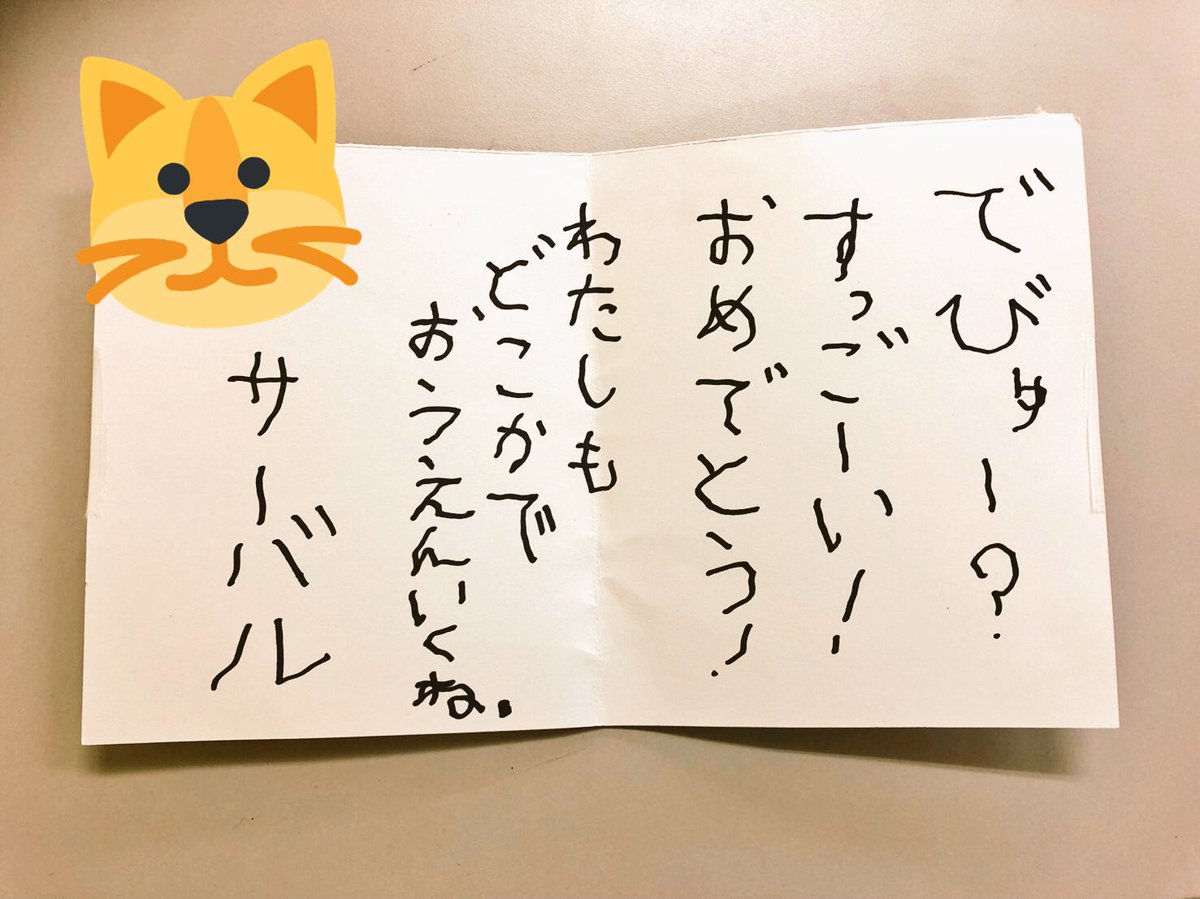 でびゅー?
すっごーい!
おめでとう!
わたしも
どこかで
おうえんいくね.
サーバル